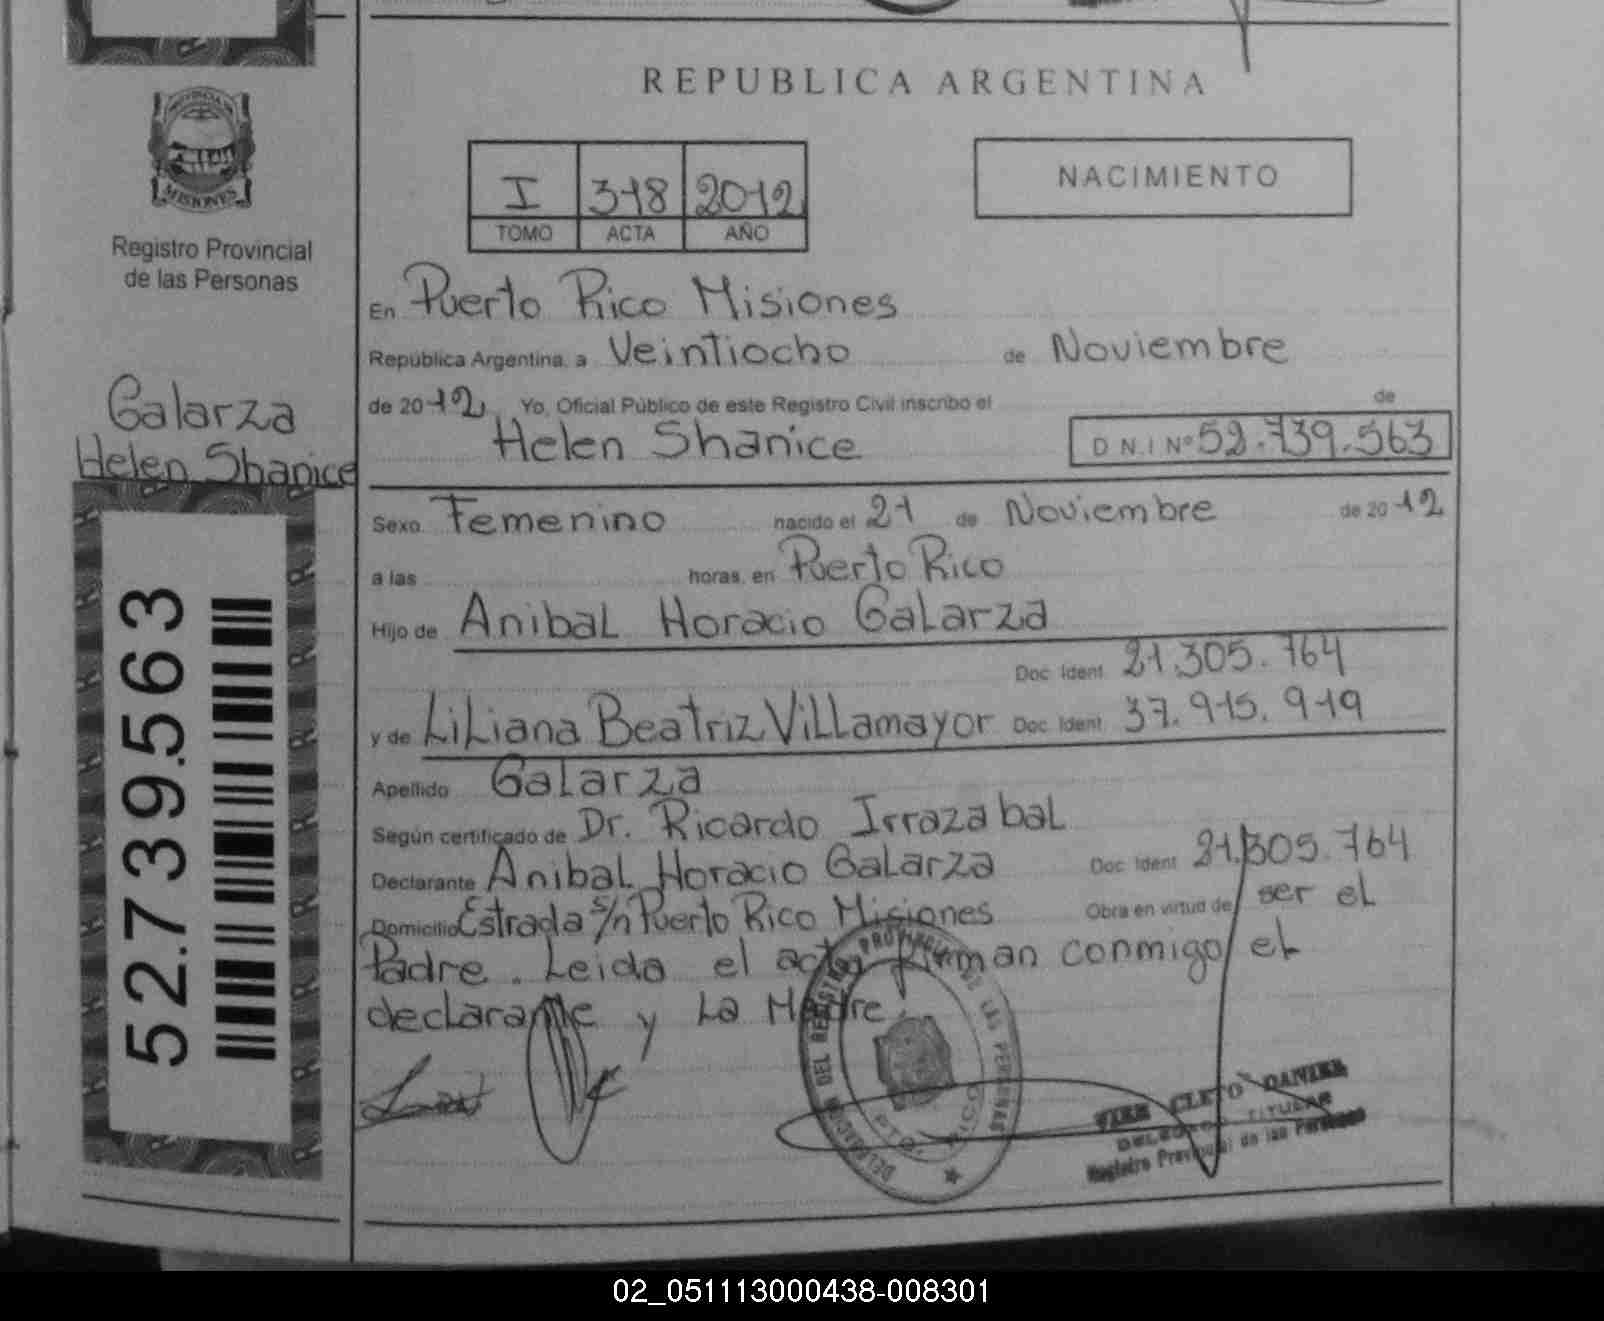 REPUBLICA ARGENTINA
PROVINCIA DE
MISIONES
Registro Provincial
de las Personas
I 318 2012
TOMO ACTA AÑO
NACIMIENTO
En Puerto Rico Misiones
República Argentina, a Veintiocho de Noviembre
de 2012 Yo, Oficial Público de este Registro Civil inscribo el de
Helen Shanice D.N.I Nº 52.739.563
Galarza
Helen Shanice
52.739.563
Sexo Femenino nacido el 21 de Noviembre de 2012
a las horas, en Puerto Rico
Hijo de Anibal Horacio Galarza
Doc Ident 21.305.764
y de Liliana Beatriz Villamayor Doc Ident 37.915.919
Apellido Galarza
Según certificado de Dr. Ricardo Irrazabal
Declarante Anibal Horacio Galarza Doc Ident 21.305.764
Domicilio Estrada s/n Puerto Rico Misiones Obra en virtud de ser el
Padre. Leida el acta firman conmigo el
declarante y La Madre.
DELEGACION DEL REGISTRO PROVINCIAL DE LAS PERSONAS
RICO
CLETO DANIEL
TITULAR
Registro Provincial de las Personas
02_051113000438-008301